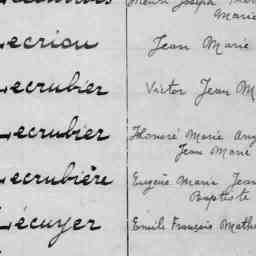 Marie
Lecriou Jean Marie
Lecrubier Victor Jean M
Lecrubier Honoré Marie Ang
Jean Marie
Lecrubière Eugène Marie Jean
Baptiste
Lécuyer Emile François Math